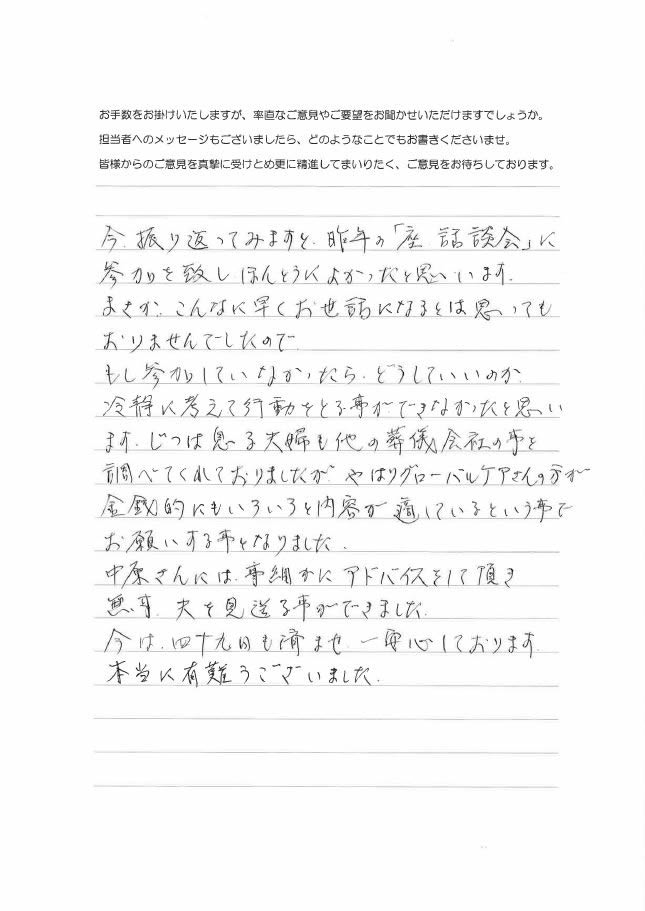 お手数をお掛けいたしますが、率直なご意見やご要望をお聞かせいただけますでしょうか。
担当者へのメッセージもございましたら、どのようなことでもお書きくださいませ。
皆様からのご意見を真摯に受けとめ更に精進してまいりたく、ご意見をお待ちしております。
今、振り返ってみますと、昨年の「座話談会」に
参加を致しほんとうによかったと思います。
まさか、こんなに早くお世話になるとは思っても
おりませんでしたので
もし参加していなかったら、どうしていいのか、
冷静に考えて行動をとる事ができなかったと思い
ます。じつは息子夫婦も他の葬儀会社の事を
調べてくれておりましたが、やはりグローバルケアさんの方が
金銭的にもいろいろと内容が適しているという事で
お願いする事となりました。
中原さんには、事細かにアドバイスをして頂き
無事、夫を見送る事ができました。
今は、四十九日も済ませ一安心しております。
本当に有難うございました。